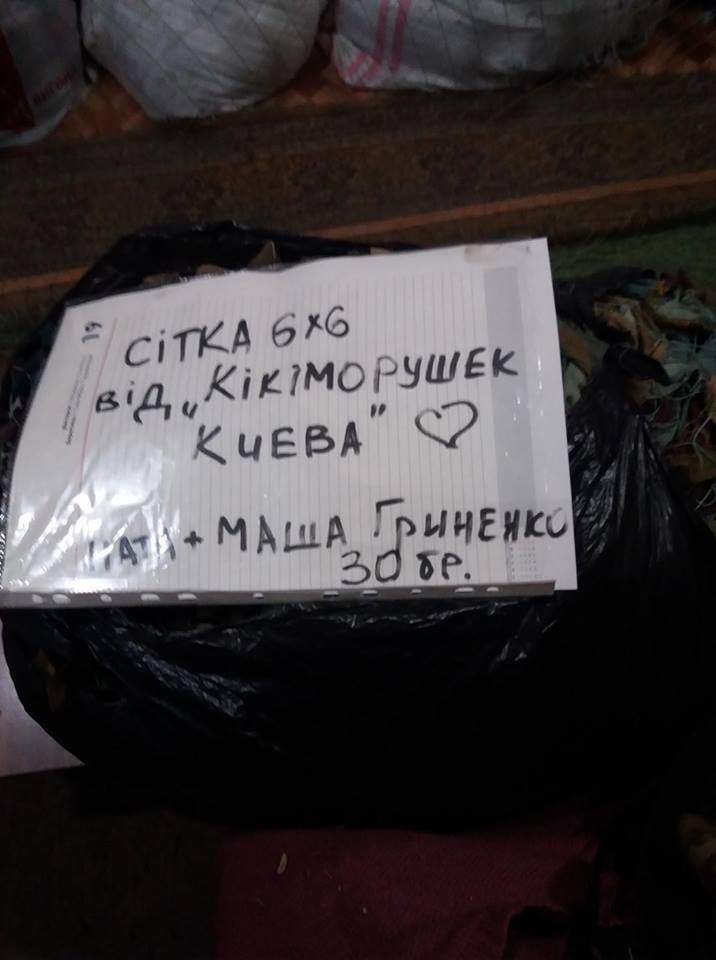 19
СІТКА 6×6
ВІД „КІКІМОРУШЕК
КИЕВА" ♡
НАТА + МАША ГРИНЕНКО
30 бр.